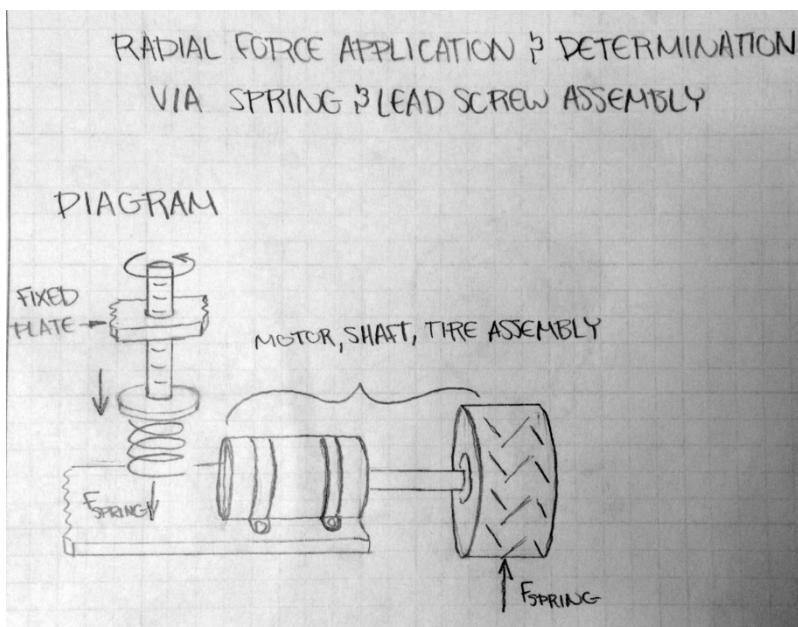 RADIAL FORCE APPLICATION & DETERMINATION
VIA SPRING & LEAD SCREW ASSEMBLY
DIAGRAM
FIXED
PLATE
MOTOR, SHAFT, TIRE ASSEMBLY
FSPRING
FSPRING